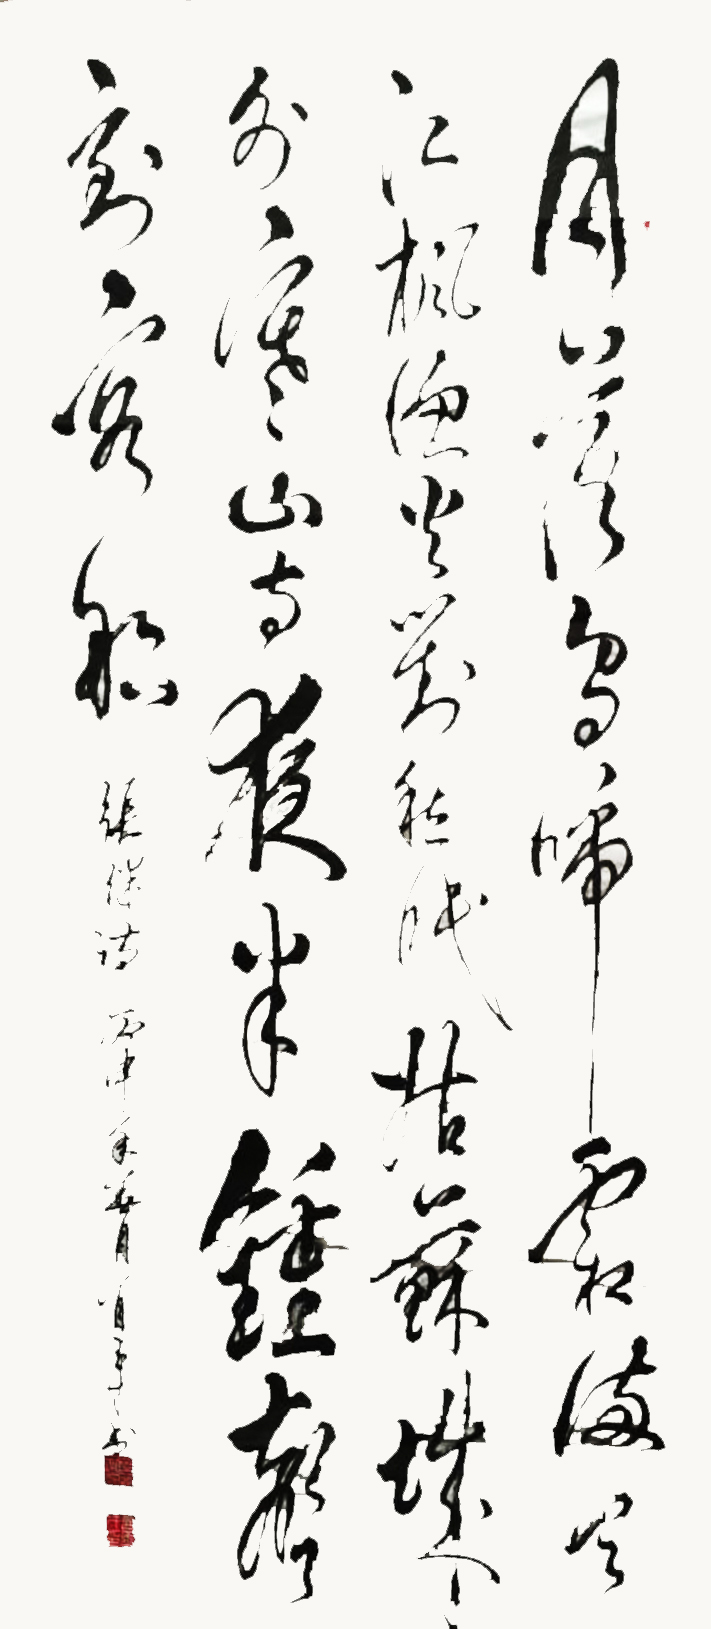 月落烏啼霜滿天
江楓漁火對愁眠姑蘇城
外寒山寺夜半鍾聲
到客船
張继詩 丙申年